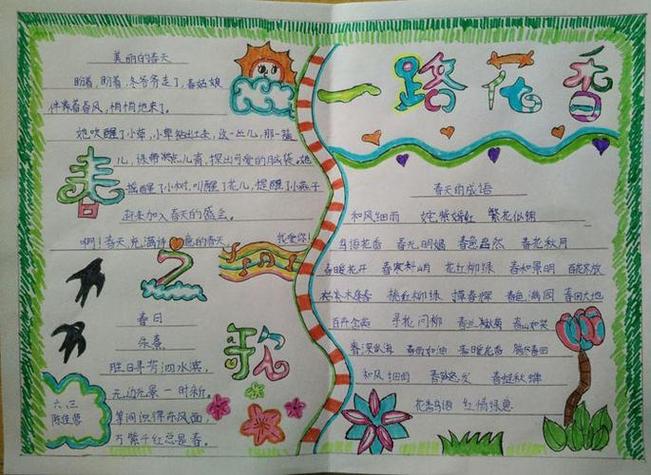 美丽的春天
盼着,盼着,冬爷爷走了,春姑娘
伴着春风,悄悄地来了。
她吹醒了小草,小草钻出土,这一丛儿,那一
儿,探出可爱的脑袋。她
摇醒了小树,叫醒了花儿,提醒了小燕子
赶来加入春天的盛会。
啊!春天,充满诗色的春天,我爱你!
春之歌
春日
朱熹
胜日寻芳泗水滨,
无边光景一时新。
等闲识得东风面,
万紫千红总是春。
六、三
一路花香
春天的成语
和风细雨 姹紫嫣红 繁花似锦
鸟语花香 春光明媚 春色盎然 春花秋月
春暖花开 春寒料峭 花红柳绿 春和景明 百花齐放
桃红柳绿 春色满园 春回大地
百卉含英 寻花问柳 春兰秋菊 春山如笑
春深似海 春雨如油 春暖花香
和风细雨
花香鸟语 红情绿意